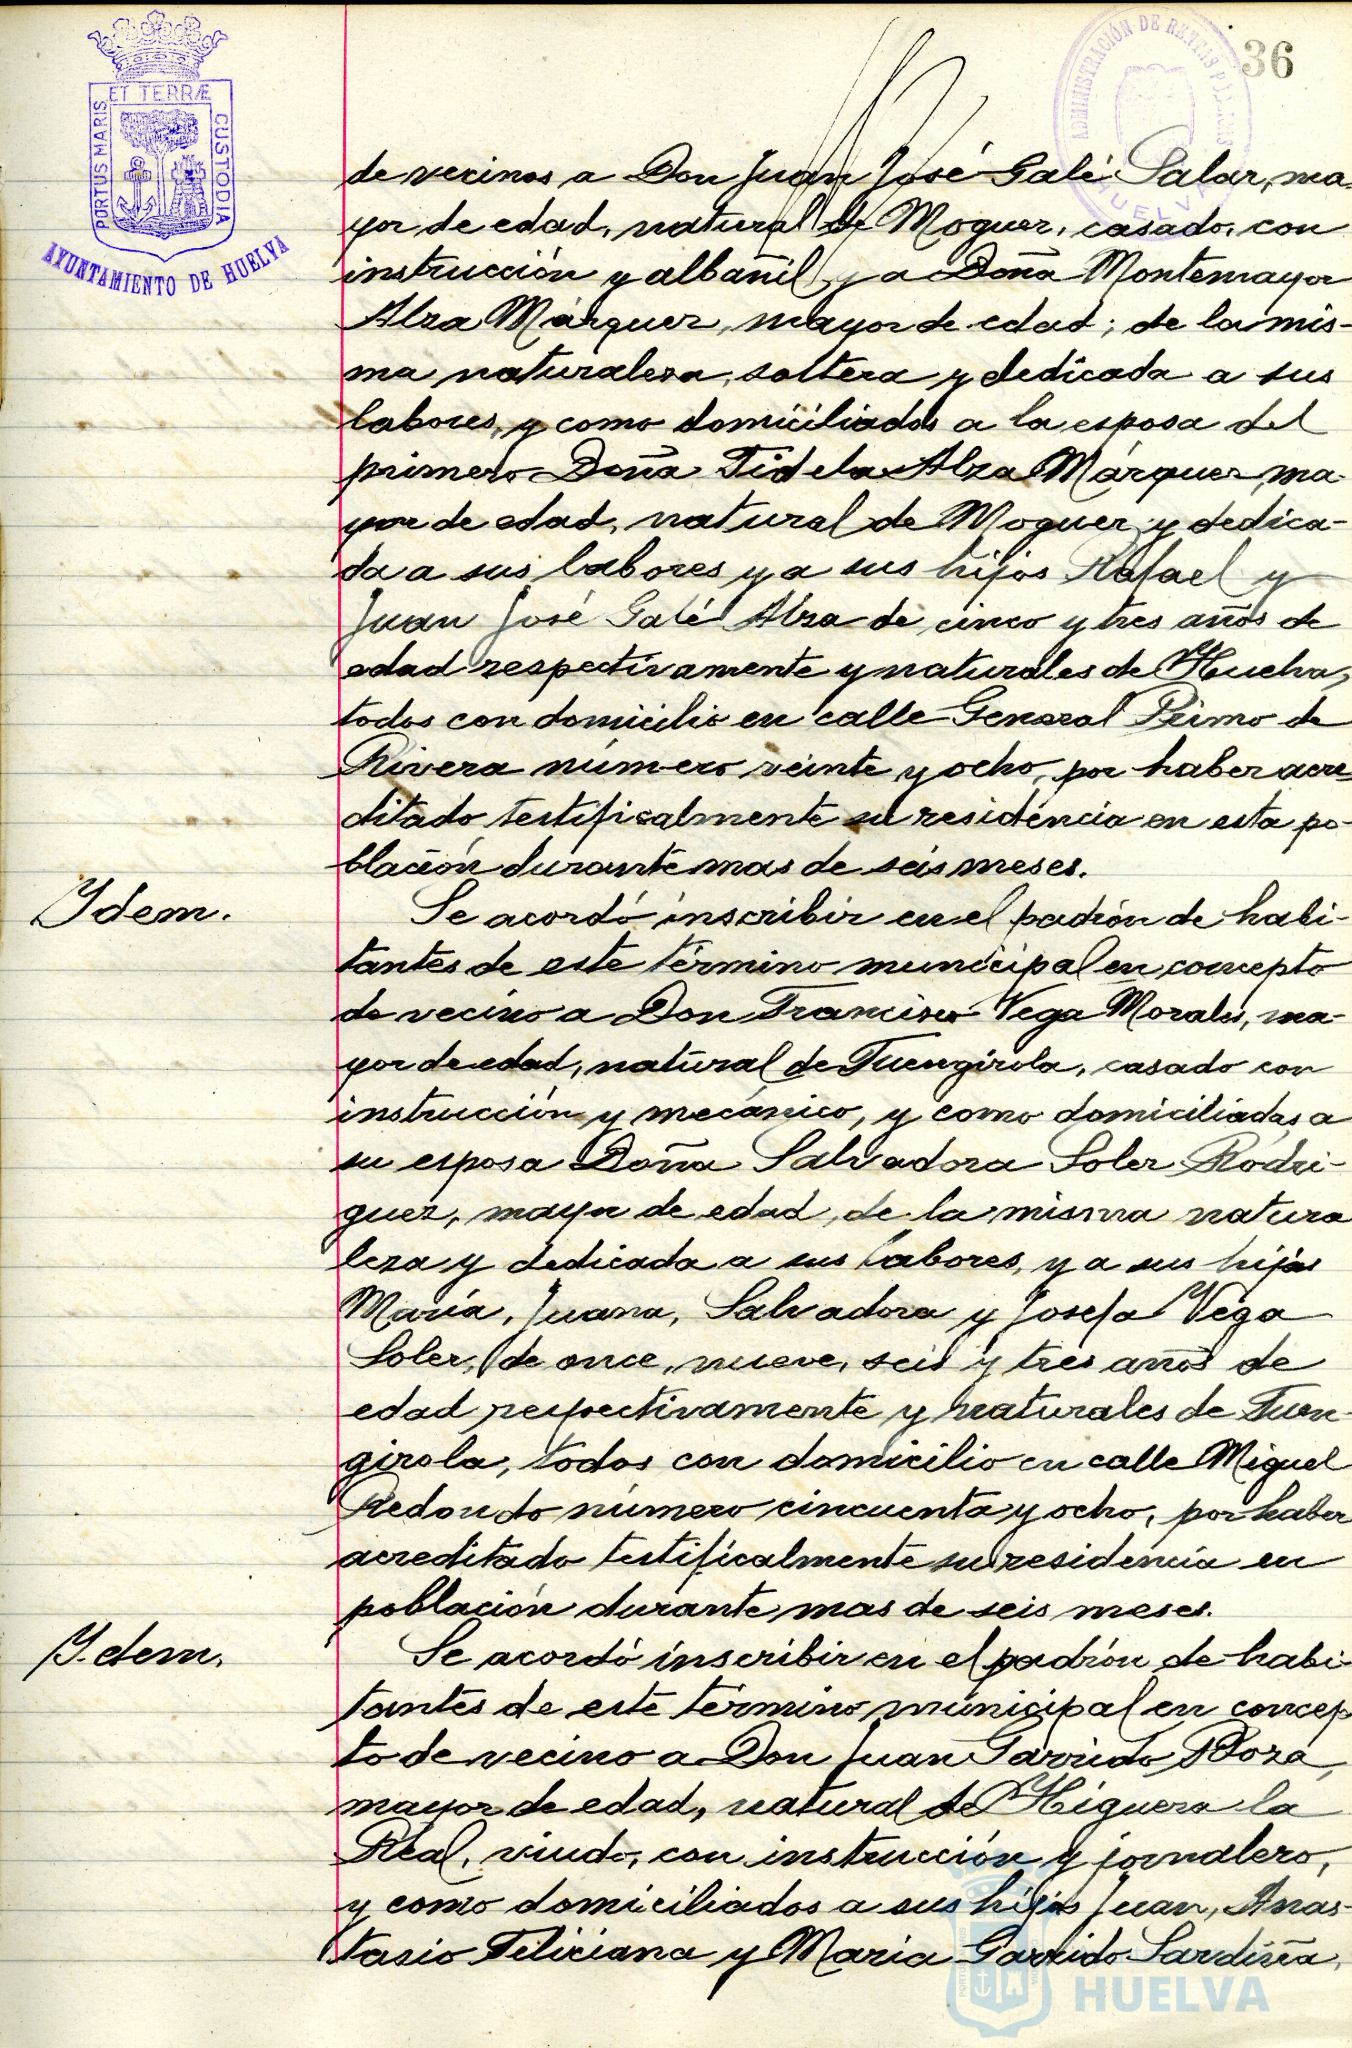 36
PORTUS MARIS ET TERRÆ CUSTODIA
AYUNTAMIENTO DE HUELVA
ADMINISTRACIÓN DE RENTAS PÚBLICAS
HUELVA
de vecinos a Don Juan José Galé Salar, ma-
yor de edad, natural de Moguer, casado, con
instrucción y albañil y a Doña Montemayor
Alza Márquez, mayor de edad, de la mis-
ma naturaleza, soltera y dedicada a sus
labores, y como domiciliados a la esposa del
primero Doña Fidela Alza Márquez, ma-
yor de edad, natural de Moguer y dedica-
da a sus labores y a sus hijos Rafael y
Juan José Galé Alza de cinco y tres años de
edad respectivamente y naturales de Huelva,
todos con domicilio en calle General Primo de
Rivera número veinte y ocho, por haber acre-
ditado testificalmente su residencia en esta po-
blación durante mas de seis meses.
Ydem. Se acordó inscribir en el padrón de habi-
tantes de este término municipal en concepto
de vecino a Don Francisco Vega Morales, ma-
yor de edad, natural de Fuengirola, casado con
instrucción y mecánico, y como domiciliadas a
su esposa Doña Salvadora Soler Rodri-
guez, mayor de edad, de la misma natura
leza y dedicada a sus labores, y a sus hijas
María, Juana, Salvadora y Josefa Vega
Soler, de once, nueve, seis y tres años de
edad respectivamente y naturales de Fuen-
girola, todos con domicilio en calle Miguel
Redondo número cincuenta y ocho, por haber
acreditado testificalmente su residencia en
población durante mas de seis meses.
Ydem. Se acordó inscribir en el padrón de habi-
tantes de este término municipal en concep-
to de vecino a Don Juan Garrido Boza,
mayor de edad, natural de Higuera la
Real, viudo, con instrucción y jornalero,
y como domiciliados a sus hijos Juan, Anas-
tasio Feliciana y María Garrido Sardiña,
HUELVA